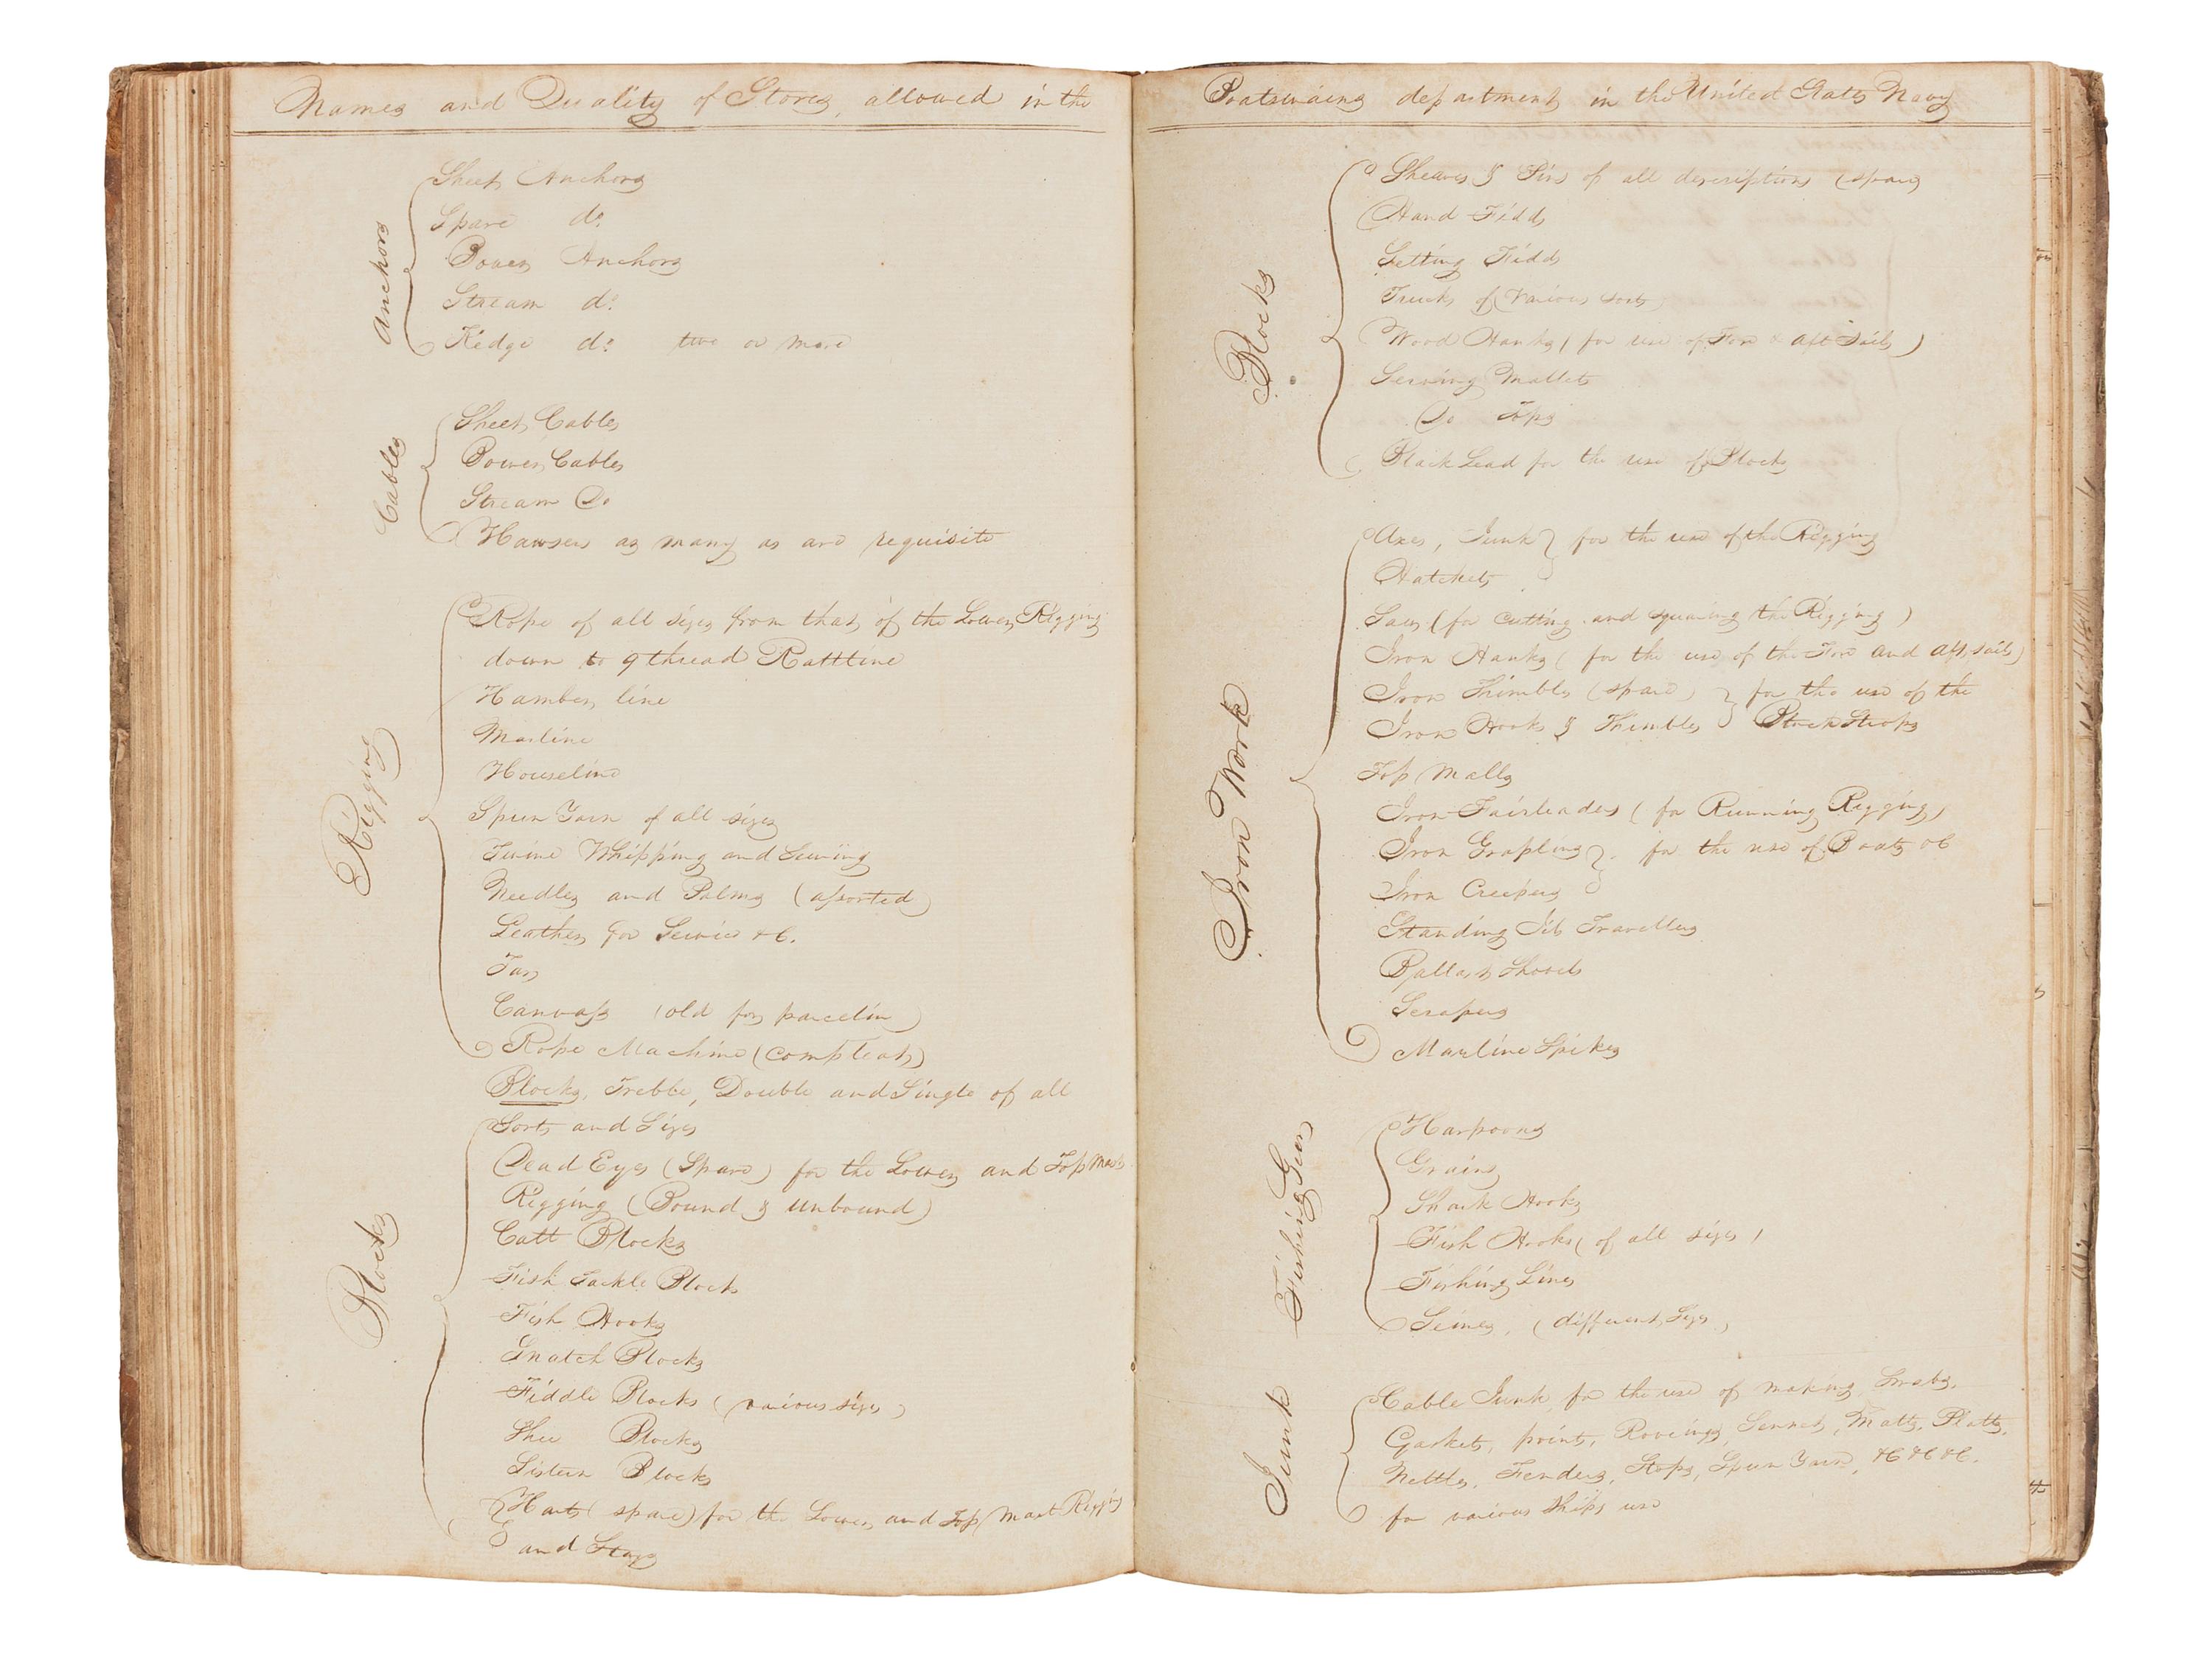 Names and Quality of Stores, allowed in the
Anchors
Sheet Anchors
Spare do.
Bower Anchors
Stream do.
Kedge do. two or more
Cables
Sheet Cables
Bower Cables
Stream Do
Hawsers as many as are requisite
Rigging
Rope of all sizes from that of the Lower Rigging
down to 9 thread Rattline
Hamber line
Marline
Houseline
Spun Yarn of all sizes
Twine Whipping and Sewing
Needles and Palms (assorted)
Leather for Service &c.
Tar
Canvass (old for parcelin)
Rope Machine (compleat)
Blocks
Blocks, Trebble, Double and Single of all
Sorts and Sizes
Dead Eyes (Spare) for the Lower and Top Mast
Rigging (Bound & unbound)
Catt Blocks
Fish Tackle Block
Fish Hooks
Snatch Blocks
Fiddle Blocks (various sizes)
Shoe Blocks
Sistern Blocks
Harts (spare) for the Lower and Top Mast Rigging
and Stays
Boatswains department in the United States Navy
Blocks
Sheaves & Pins of all descriptions (spare)
Hand Fidds
Setting Fidds
Trucks of various sorts
Wood Hanks (for use of Fore & aft Sails)
Serving Mallets
Do Tops
Black Lead for the use of Blocks
Iron Work
Axes, Junk } for the use of the Rigging
Hatchets
Saws (for cutting and squaring the Rigging)
Iron Hanks (for the use of the Fore and Aft sails)
Iron Thimbles (spare) } for the use of the
Iron Hooks & Thimbles } Block Strops
Top Malls
Iron Fairleaders (for Running Rigging)
Iron Grapling } for the use of Boats &c
Iron Creepers
Standing Jib Travellers
Ballast Shovels
Scrapers
Marline Spikes
Fishing Geer
Harpoons
Grains
Shark Hooks
Fish Hooks (of all sizes)
Fishing Lines
Seines, (different Sizes)
Junk
Cable Junk for the use of making Swabs,
Gaskets, points, Rovings, Sennet, Matts, Platts,
Nettles, Fenders, Stops, Spun Yarn, &c &c &c.
for various Ships use